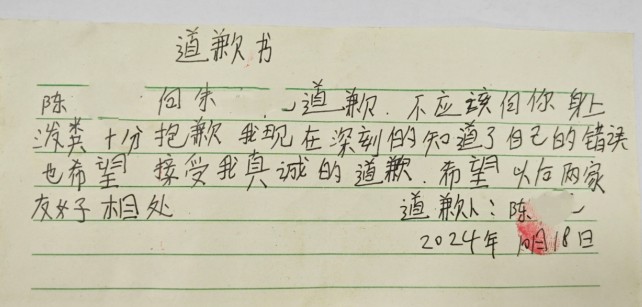 道歉书
陈 向朱 道歉. 不应该向你身上
泼粪 十分抱歉 我现在深刻的知道了自己的错误
也希望 接受我真诚的道歉. 希望 以后两家
友好相处 道歉人: 陈
2024年10月18日